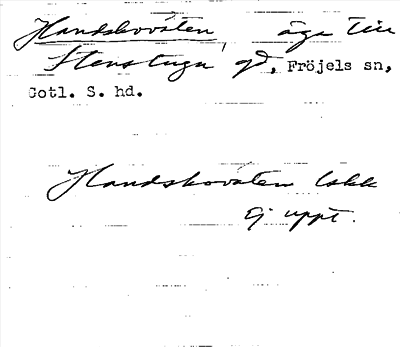 Handskoväten, äga till
Stenstugu gd, Fröjels sn,
Gotl. S. hd.
Handskoväten lskk
Ej uppt.